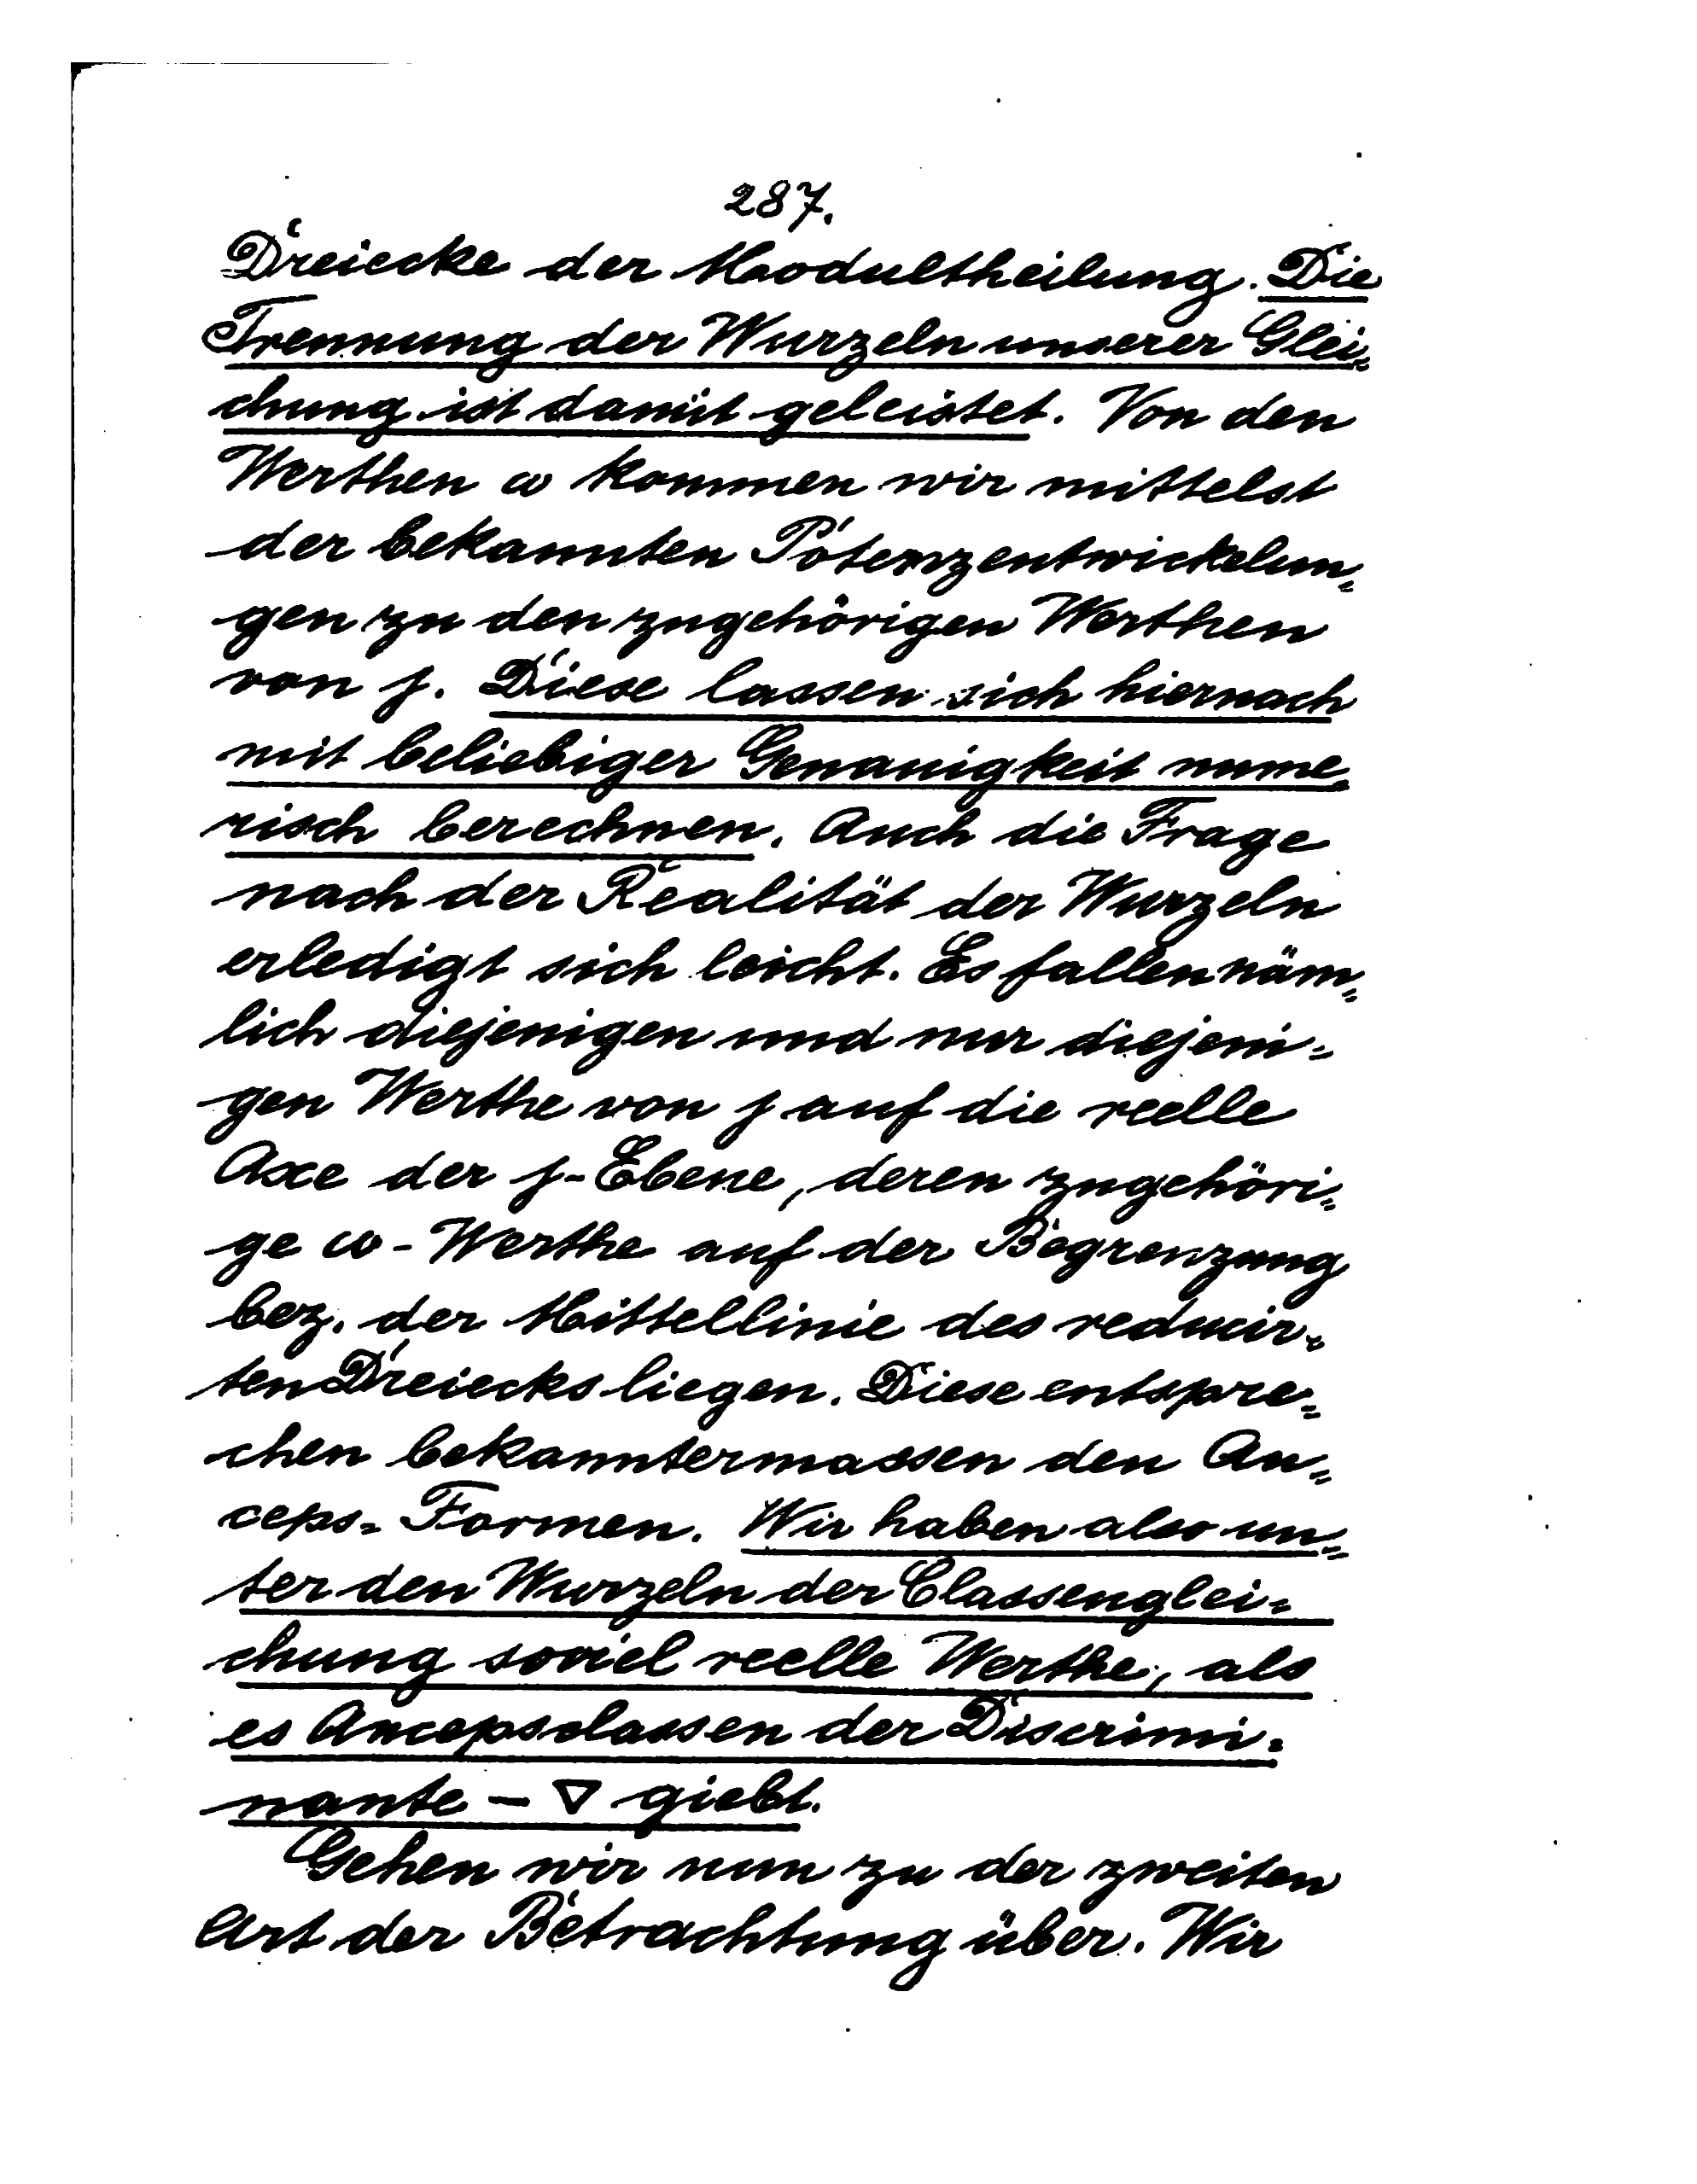 287.
Dreiecke der Modultheilung. Die
Trennung der Wurzeln unserer Glei=
chung ist damit geleistet. Von den
Werthen ω kommen wir mittelst
der bekannten Potenzentwickelun=
gen zu den zugehörigen Werthen
von j. Diese lassen sich hiernach
mit beliebiger Genauigkeit nume=
risch berechnen. Auch die Frage
nach der Realität der Wurzeln
erledigt sich leicht. Es fallen näm=
lich diejenigen und nur diejeni=
gen Werthe von j auf die reelle
Axe der j-Ebene, deren zugehöri=
ge ω-Werthe auf der Begrenzung
bez. der Mittellinie des reducir=
ten Dreiecks liegen. Diese entspre=
chen bekanntermassen den An=
ceps=Formen. Wir haben also un=
ter den Wurzeln der Classenglei=
chung soviel reelle Werthe, als
es Ancepsclassen der Discrimi=
nante - ∇ giebt.
Gehen wir nun zu der zweiten
Art der Betrachtung über. Wir